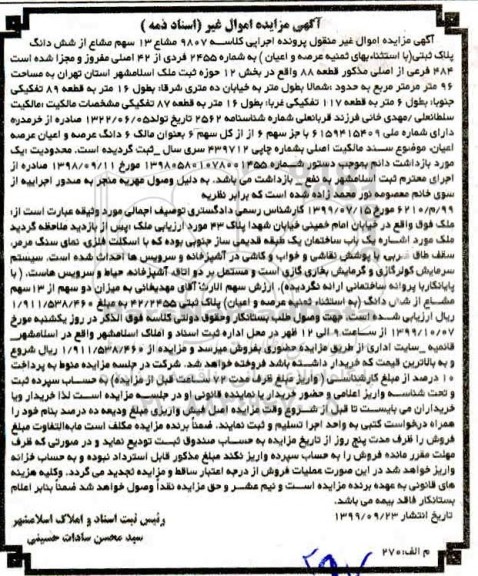 آگهی مزایده اموال غیر (اسناد ذمه )
آگهی مزایده اموال غیر منقول پرونده اجرایی کلاسه ۹۸۰۷ مشاع ۱۳ سهم مشاع از شش دانگ
پلاک ثبتی(با استثناءبهای ثمنیه عرصه و اعیان ) به شماره ۲۴۵۵ فردی از ۴۲ اصلی مفروز و مجزا شده است
۴۸۴ فرعی از اصلی مذکور قطعه ۸۸ واقع در بخش ۱۲ حوزه ثبت ملک اسلامشهر استان تهران به مساحت
۹۶ متر مرمتر مربع به حدود :شمالا بطول متر به خیابان ده متری شرقا: بطول ۱۶ متر به قطعه ۸۹ تفکیکی
جنوبا: بطول ۶ متر به قطعه ۱۱۷ تفکیکی غربا: بطول ۱۶ متر به قطعه ۸۷ تفکیکی مشخصات مالکیت :مالکیت
سلطانعلی/مهدی خانی فرزند قربانعلی شماره شناسنامه ۲۵۶۲ تاریخ تولد۱۳۲۲/۰۶/۰۵ صادره از خرمدره
دارای شماره ملی ۶۱۵۹۴۱۵۴۰۹ با جز سهم ۶ از از کل سهم ۶ بعنوان مالک ۶ دانگ عرصه و اعیان عرصه
اعیان، موضوع سند مالکیت اصلی بشماره چاپی ۴۳۹۷۱۲ سری سال _ثبت گردیده است. محدودیت :یک
مورد بازداشت دائم بموجب دستور شماره ۱۳۹۸۰۵۸۰۱۰۷۸۰۰۱۴۵۵ مورخ ۱۳۹۸/۰۹/۱۱ صادره از
اجرای محترم ثبت اسلامشهر به نفع _ بازداشت می باشد. به دلیل وصول مهریه منجر به صدور اجراییه از
سوی خانم معصومه نور محمد زاده شده است که برابر نظریه
۹۹/م/۶۲۱۰ مورخ ۱۳۹۹/۰۷/۱۵ کارشناس رسمی دادگستری توصیف اجمالی مورد وثیقه عبارت است از:
ملک فوق واقع در خیابان امام خمینی خیابان شهدا پلاک ۴۳ مورد ارزیابی ملک :پس از بازدید ملاحظه گردید
ملک مورد اشاره یک باب ساختمان یک طبقه قدیمی ساز جنوبی بوده که با اسکلت فلزی، نمای سنگ مرمر،
سقف طاق ضربی با پوشش نقاشی و خواب و کاشی در آشپزخانه و سرویس ها احداث شده است. سیستم
سرمایش کولرگازی و گرمایش بخاری گازی است و مستمل بر دو اتاقه آشپزخانه حیاط و سرویس هاست. (با
پایانکاریا پروانه ساختمانی ارائه نگردیده). ارزش سهم الارث: آقای مهدیخانی به میزان دو سهم از ۱۳سهم
مشاع از شش دانگ (به استثناء ثمنیه عرصه و اعیان) پلاک ثبتی ۴۲/۲۴۵۵ به مبلغ ۱/۹۱۱/۵۳۸/۴۶۰
ریال ارزیابی شده است، جهت وصول طلب بستانکار وحقوق دولتی کلاسه فوق الذکر در روز یکشنبه مورخ
۱۳۹۹/۱۰/۰۷ از ساعت ۹ الی ۱۲ ظهر در محل اداره ثبت اسناد و املاک اسلامشهر واقع در اسلامشهر_
قائمیه _سایت اداری از طریق مزایده حضوری بفروش میرسد و مزایده از ۱/۹۱۱/۵۳۸/۴۶۰ ریال شروع
و به بالاترین قیمت که خریدار داشته باشد فروخته خواهد شد. شرکت در جلسه مزایده منوط به پرداخت
۱۰ درصد از مبلغ کارشناسی ( واریز مبلغ ظرف مدت ۷۲ ساعت قبل از مزایده) به حساب سپرده ثبت
و تحت شناسه واریز اعلامی و حضور خریدار یا نماینده قانونی او در جلسه مزایده است لذا خریدار ویا
خریداران می بایست تا قبل از شروع وقت مزایده اصل فیش واریزی مبلغ ودیعه ده درصد بنام خود را
همراه درخواست کتبی به واحد اجرا تسلیم و ثبت نمایند. ضمنا برنده مزایده مکلف است مابه التفاوت مبلغ
فروش را ظرف مدت پنج روز از تاریخ مزایده به حساب صندوق ثبت تودیع نماید و در صورتی که ظرف
مهلت مقرر مانده فروش را به حساب سپرده واریز نکند مبلغ مذکور قابل استرداد نبوده و به حساب خزانه
واریز خواهد شد در این صورت عملیات فروش از درجه اعتبار ساقط و مزایده تجدید می گردد. وکلیه هزینه
های قانونی به عهده برنده مزایده است و نیم عشر و حق مزایده نقداً وصول خواهد شد ضمناً بنابر اعلام
بستانکار فاقد بیمه می باشد.
تاریخ انتشار ۱۳۹۹/۰۹/۲۳
رئیس ثبت اسناد و املاک اسلامشهر
سید محسن سادات حسینی
م الف:۲۷۰